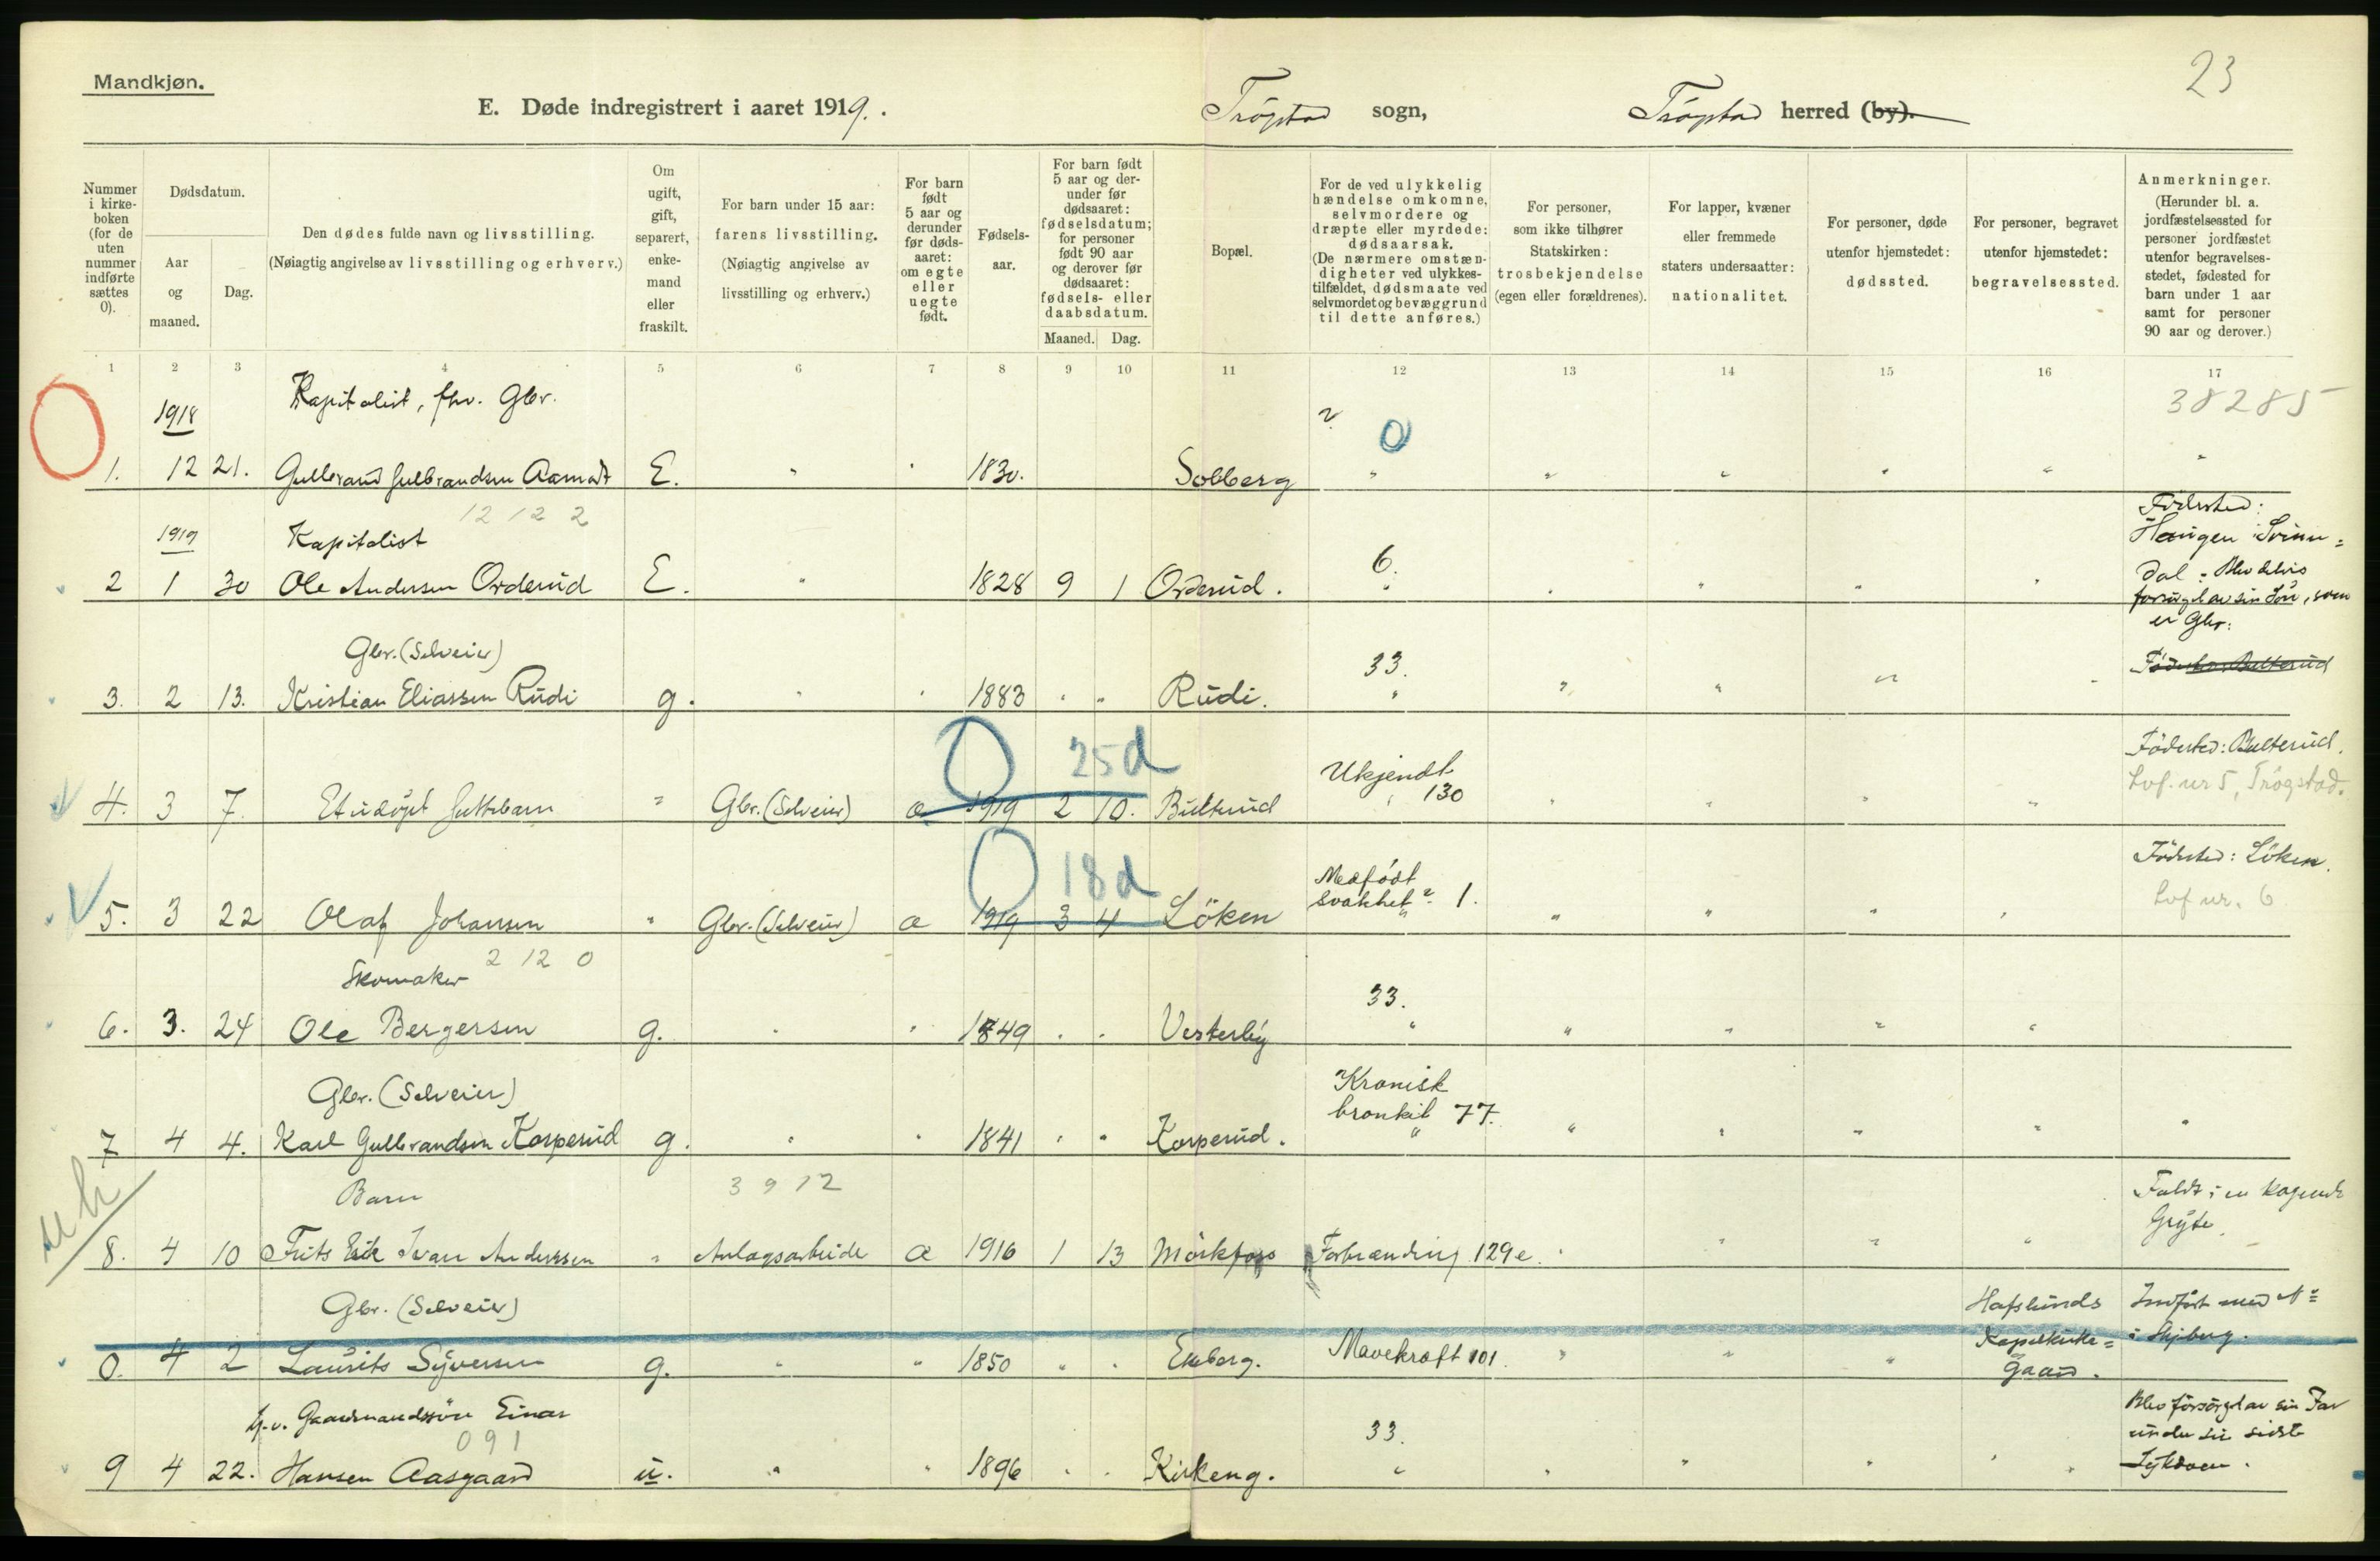 23
Mandkjøn.
E. Døde indregistrert i aaret 1919. . Trögstad sogn, Trögstad herred (by).
Nummer i kirkeboken (for de uten nummer indførte sættes 0).
Dødsdatum.
Aar og maaned.
Dag.
Den dødes fulde navn og livsstilling.
(Nøiagtig angivelse av livsstilling og erhverv.)
Om ugift, gift, separert, enkemand eller fraskilt.
For barn under 15 aar: farens livsstilling.
(Nøiagtig angivelse av livsstilling og erhverv.)
For barn født 5 aar og derunder før dødsaaret: om egte eller uegte født.
Fødselsaar.
For barn født 5 aar og derunder før dødsaaret: fødselsdatum; for personer født 90 aar og derover før dødsaaret: fødsels- eller daabsdatum.
Maaned. Dag.
Bopæl.
For de ved ulykkelig hændelse omkomne, selvmordere og dræpte eller myrdede: dødsaarsak.
(De nærmere omstændigheter ved ulykkestilfældet, dødsmaate ved selvmordet og bevæggrund til dette anføres.)
For personer, som ikke tilhører Statskirken: trosbekjendelse (egen eller forældrenes).
For lapper, kvæner eller fremmede staters undersaatter: nationalitet.
For personer, døde utenfor hjemstedet: dødssted.
For personer, begravet utenfor hjemstedet: begravelsessted.
Anmerkninger.
(Herunder bl. a. jordfæstelsessted for personer jordfæstet utenfor begravelsesstedet, fødested for barn under 1 aar samt for personer 90 aar og derover.)
1 2 3 4 5 6 7 8 9 10 11 12 13 14 15 16 17
38285
1918 Kapitalist, fhv. Gbr. ? 0
1. 12 21. Gulbrand Gulbrandsen Aamodt E. " " 1830. Solberg " " " " " "
12 12 2
1919 Kapitalist 6. Födested: Haugen i Svinn=
2 1 30 Ole Andersen Orderud E. " 1828 9 1 Orderud. " " " " " dal. Blev delvis
forsörget av sin Sön, som
er Gbr.
Gbr. (Selveier) 33. Födested Bulterud
3. 2 13. Kristian Eliassen Rudi g. " " 1883 " " Rudi. " " " " "
0 25 d Ukjendt 130 Födested: Bulterud.
4. 3 7. Et udöpt Guttebarn " Gbr. (Selveier) a 1919 2 10. Bulterud " " " " " Lof. nr 5, Trögstad.
0 18 d Medfödt Födested: Löken.
5. 3 22 Olaf Johansen " Gbr. (Selveier) a 1919 3 4 Löken svakhet ? 1. " " " " Lof nr. 6
Skomaker 2 12 0 33.
6. 3. 24 Ole Bergersen g. " " 1849 " " Vesterby " " " " "
Gbr. (Selveier) Kronisk
7 4 4. Karl Gulbrandsen Korperud g. " " 1841 " " Korperud. bronkit 77. " " " " "
Barn 3 9 12 Faldt i en kogende
8. 4 10 Frits Erik Ivar Anderssen " Anlægsarbeide a 1916 1 13 Mörkfoss Forbrænding 129e. " " " " Gryte.
Gbr. (Selveier) Hafslunds Indfört med No
0. 4 2 Laurits Syversen g. " " 1850 " " Ekeberg. Mavekræft 101. " " " Kapelkirke= i Skjeberg.
Gaard.
Gaardmandssön Einar 33. Blev forsörget av sin Far
0 9 1 under sin sidste
9 4 22. Hansen Aasgaard u. " " 1896 " " Kirkeng. " " " " " Sykdom.